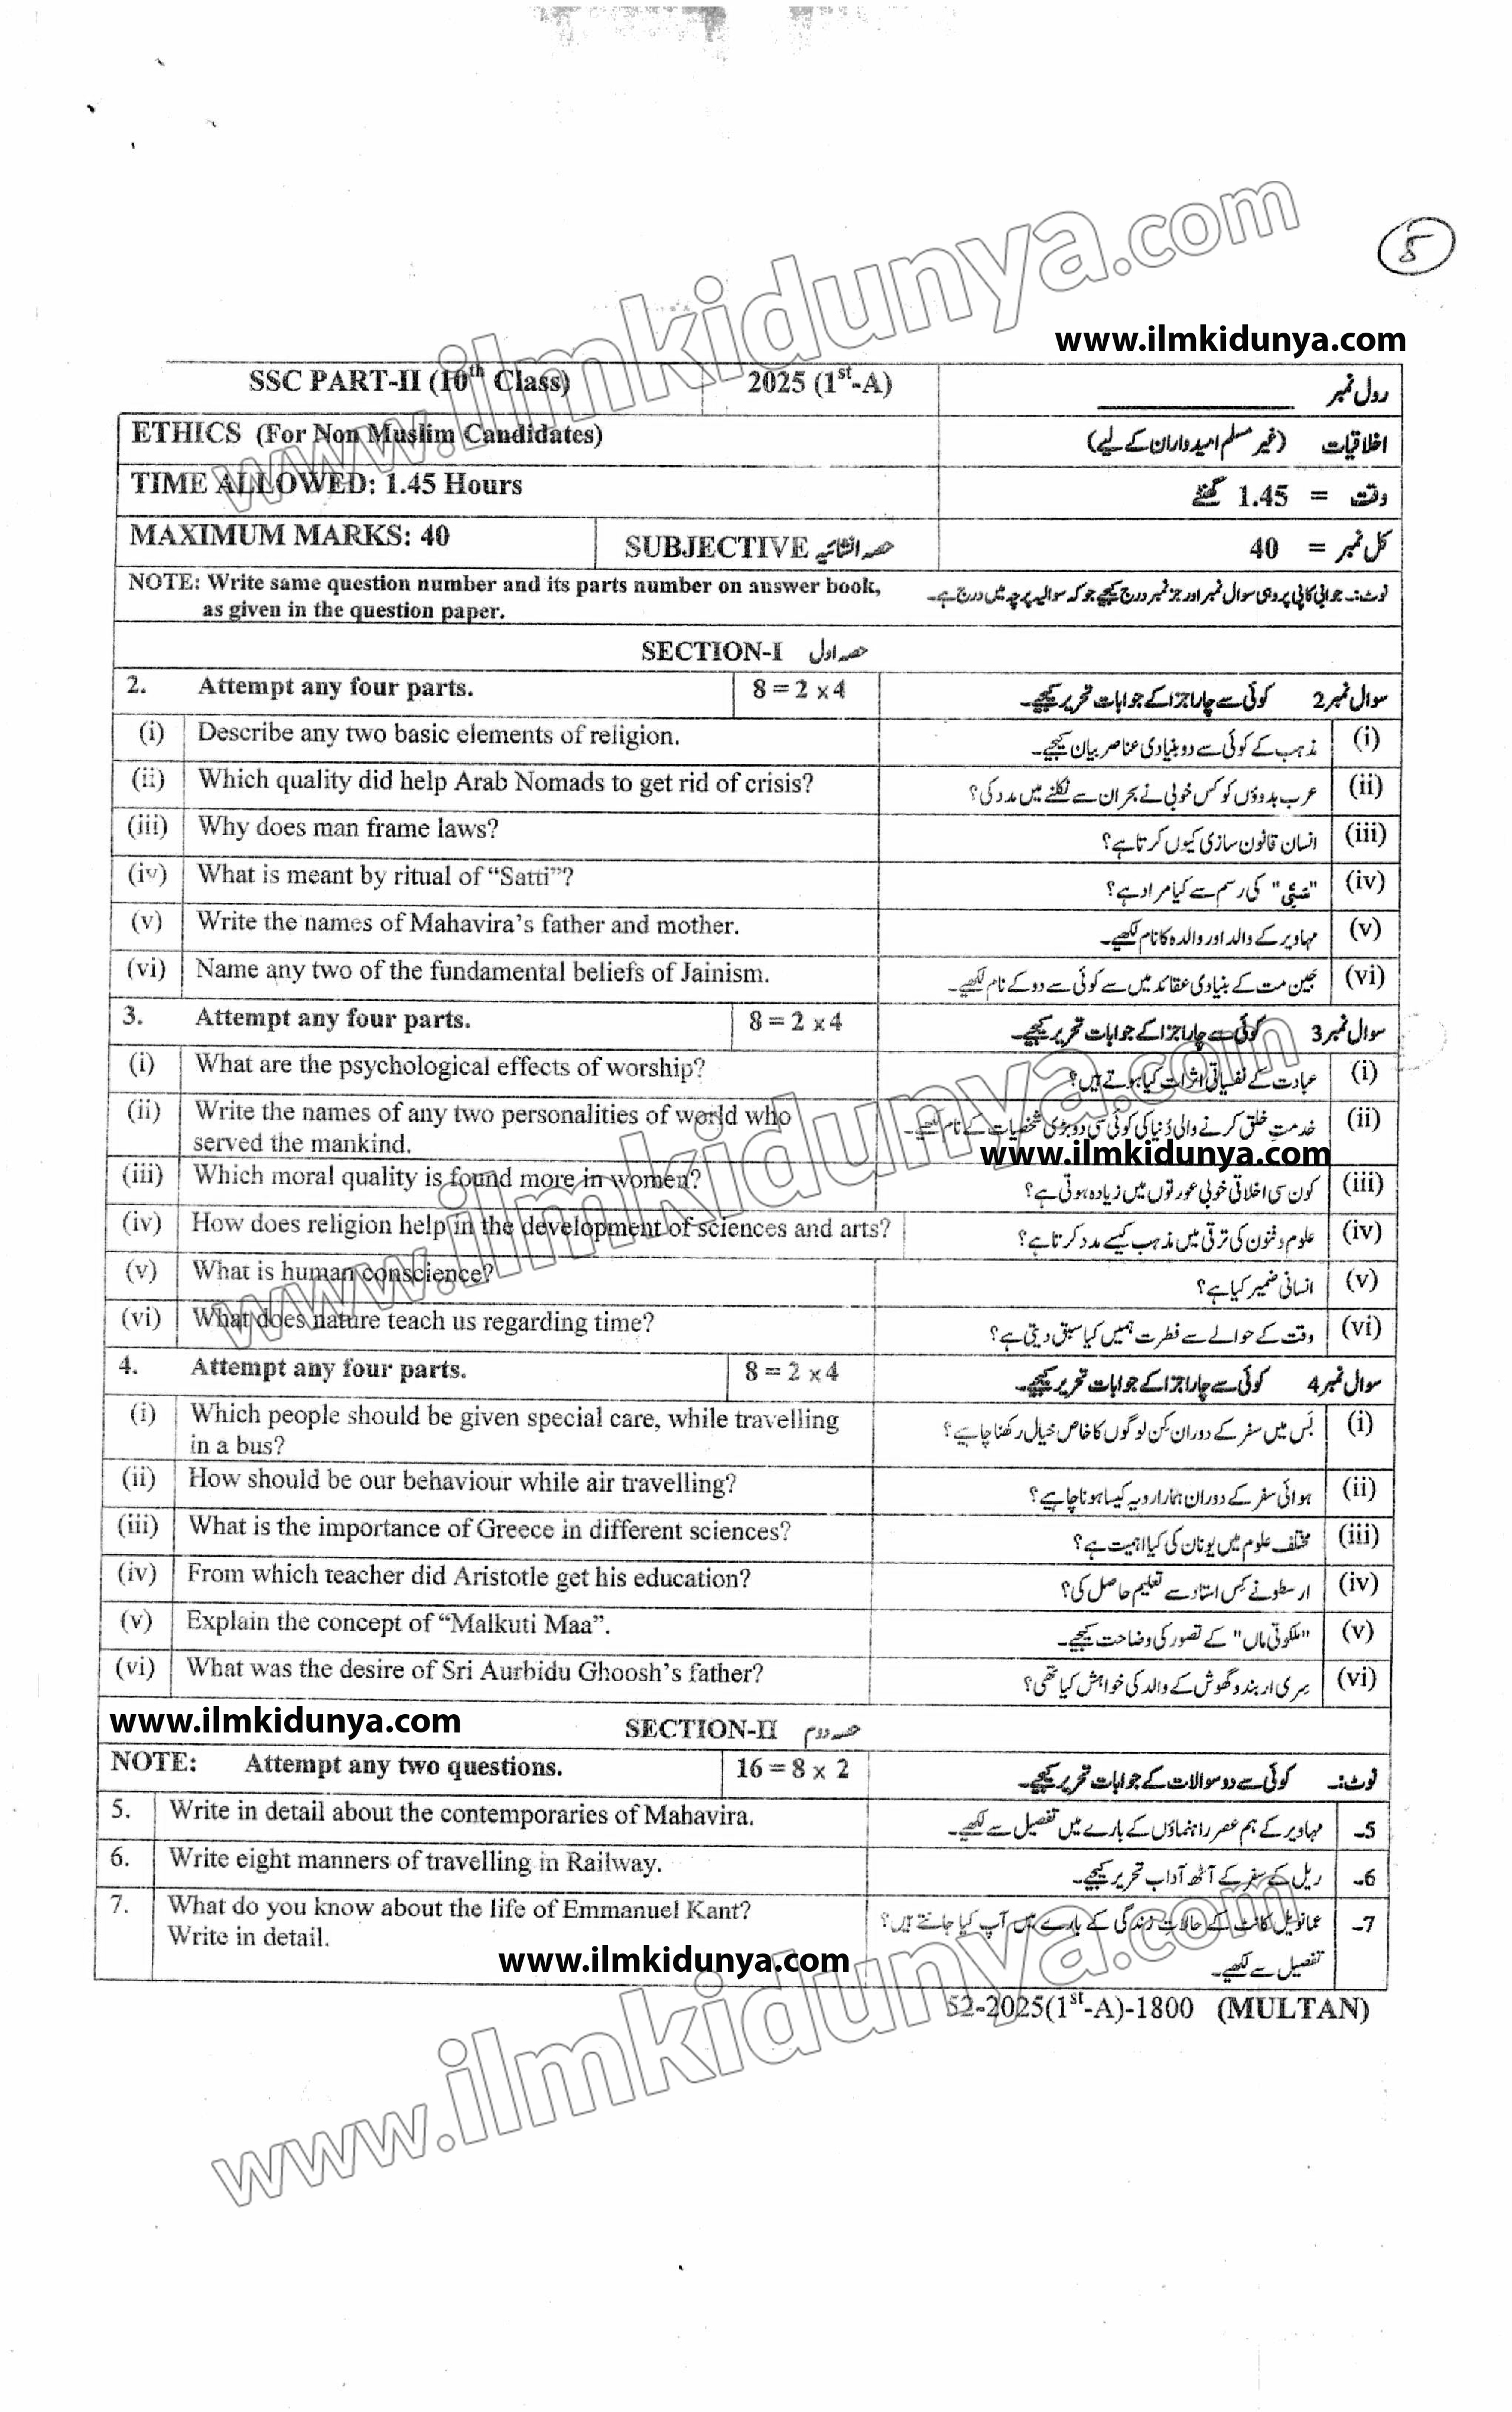 8
www.ilmkidunya.com
www.ilmkidunya.com
SSC PART-II (10th Class) 2025 (1st-A) رول نمبر
ETHICS (For Non Muslim Candidates) اخلاقیات (غیر مسلم امیدواران کے لیے)
TIME ALLOWED: 1.45 Hours وقت = 1.45 گھنٹے
MAXIMUM MARKS: 40 SUBJECTIVE حصہ انشائیہ کل نمبر = 40
NOTE: Write same question number and its parts number on answer book, نوٹ:۔ جوابی کاپی پر وہی سوال نمبر اور جز نمبر درج کیجیے جو کہ سوالیہ پرچہ میں درج ہے۔
as given in the question paper.
SECTION-I حصہ اول
2. Attempt any four parts. 8 = 2 x 4 سوال نمبر 2 کوئی سے چار اجزا کے جوابات تحریر کیجیے۔
(i) Describe any two basic elements of religion. مذہب کے کوئی سے دو بنیادی عناصر بیان کیجیے۔ (i)
(ii) Which quality did help Arab Nomads to get rid of crisis? عرب بدوؤں کو کس خوبی نے بحران سے نکلنے میں مدد کی؟ (ii)
(iii) Why does man frame laws? انسان قانون سازی کیوں کرتا ہے؟ (iii)
(iv) What is meant by ritual of “Satti”? کی رسم سے کیا مراد ہے؟ (iv)
(v) Write the names of Mahavira’s father and mother. مہاویر کے والد اور والدہ کا نام لکھیے۔ (v)
(vi) Name any two of the fundamental beliefs of Jainism. جین مت کے بنیادی عقائد میں سے کوئی سے دو کے نام لکھیے۔ (vi)
3. Attempt any four parts. 8 = 2 x 4 سوال نمبر 3 کوئی سے چار اجزا کے جوابات تحریر کیجیے۔
(i) What are the psychological effects of worship? عبادت کے نفسیاتی اثرات کیا ہوتے ہیں؟ (i)
(ii) Write the names of any two personalities of world who خدمتِ خلق کرنے والی دُنیا کی کوئی سی دو بڑی شخصیات کے نام لکھیے۔ (ii)
served the mankind. www.ilmkidunya.com
(iii) Which moral quality is found more in women? کون سی اخلاقی خوبی عورتوں میں زیادہ ہوتی ہے؟ (iii)
(iv) How does religion help in the development of sciences and arts? علوم و فنون کی ترقی میں مذہب کیسے مدد کرتا ہے؟ (iv)
(v) What is human conscience? انسانی ضمیر کیا ہے؟ (v)
(vi) What does nature teach us regarding time? وقت کے حوالے سے فطرت ہمیں کیا سبق دیتی ہے؟ (vi)
www.ilmkidunya.com
4. Attempt any four parts. 8 = 2 x 4 سوال نمبر 4 کوئی سے چار اجزا کے جوابات تحریر کیجیے۔
(i) Which people should be given special care, while travelling بَس میں سفر کے دوران کِن لوگوں کا خاص خیال رکھنا چاہیے؟ (i)
in a bus?
(ii) How should be our behaviour while air travelling? ہوائی سفر کے دوران ہمارا رویہ کیسا ہونا چاہیے؟ (ii)
(iii) What is the importance of Greece in different sciences? مختلف علوم میں یونان کی کیا اہمیت ہے؟ (iii)
(iv) From which teacher did Aristotle get his education? ارسطو نے کِس استاد سے تعلیم حاصل کی؟ (iv)
(v) Explain the concept of “Malkuti Maa”. "ملکوتی ماں" کے تصور کی وضاحت کیجیے۔ (v)
(vi) What was the desire of Sri Aurbidu Ghoosh’s father? سِری اربندو گھوش کے والد کی خواہش کیا تھی؟ (vi)
www.ilmkidunya.com SECTION-II حصہ دوم
NOTE: Attempt any two questions. 16 = 8 x 2 نوٹ:۔ کوئی سے دو سوالات کے جوابات تحریر کیجیے۔
5. Write in detail about the contemporaries of Mahavira. مہاویر کے ہم عصر راہنماؤں کے بارے میں تفصیل سے لکھیے۔ 5۔
6. Write eight manners of travelling in Railway. ریل کے سفر کے آٹھ آداب تحریر کیجیے۔ 6۔
7. What do you know about the life of Emmanuel Kant? عمانوئیل کانٹ کے حالاتِ زندگی کے بارے میں آپ کیا جانتے ہیں؟ 7۔
Write in detail. تفصیل سے لکھیے۔
www.ilmkidunya.com
52-2025(1st-A)-1800 (MULTAN)
www.ilmkidunya.com